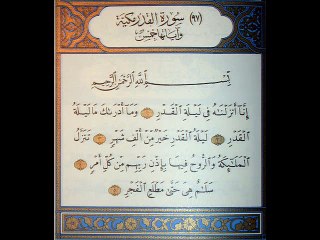 (٩٧) سُورَةُ الْقَدْرِ مَكِّيَّة
وَآيَاتُهَا خَمْسٌ
بِسْمِ اللَّهِ الرَّحْمَٰنِ الرَّحِيمِ
إِنَّآ أَنزَلْنَٰهُ فِى لَيْلَةِ الْقَدْرِ ١ وَمَآ أَدْرَىٰكَ مَا لَيْلَةُ
الْقَدْرِ ٢ لَيْلَةُ الْقَدْرِ خَيْرٌ مِّنْ أَلْفِ شَهْرٍ ٣ تَنَزَّلُ
الْمَلَٰٓئِكَةُ وَالرُّوحُ فِيهَا بِإِذْنِ رَبِّهِم مِّن كُلِّ أَمْرٍ ٤
سَلَٰمٌ هِىَ حَتَّىٰ مَطْلَعِ الْفَجْرِ ٥